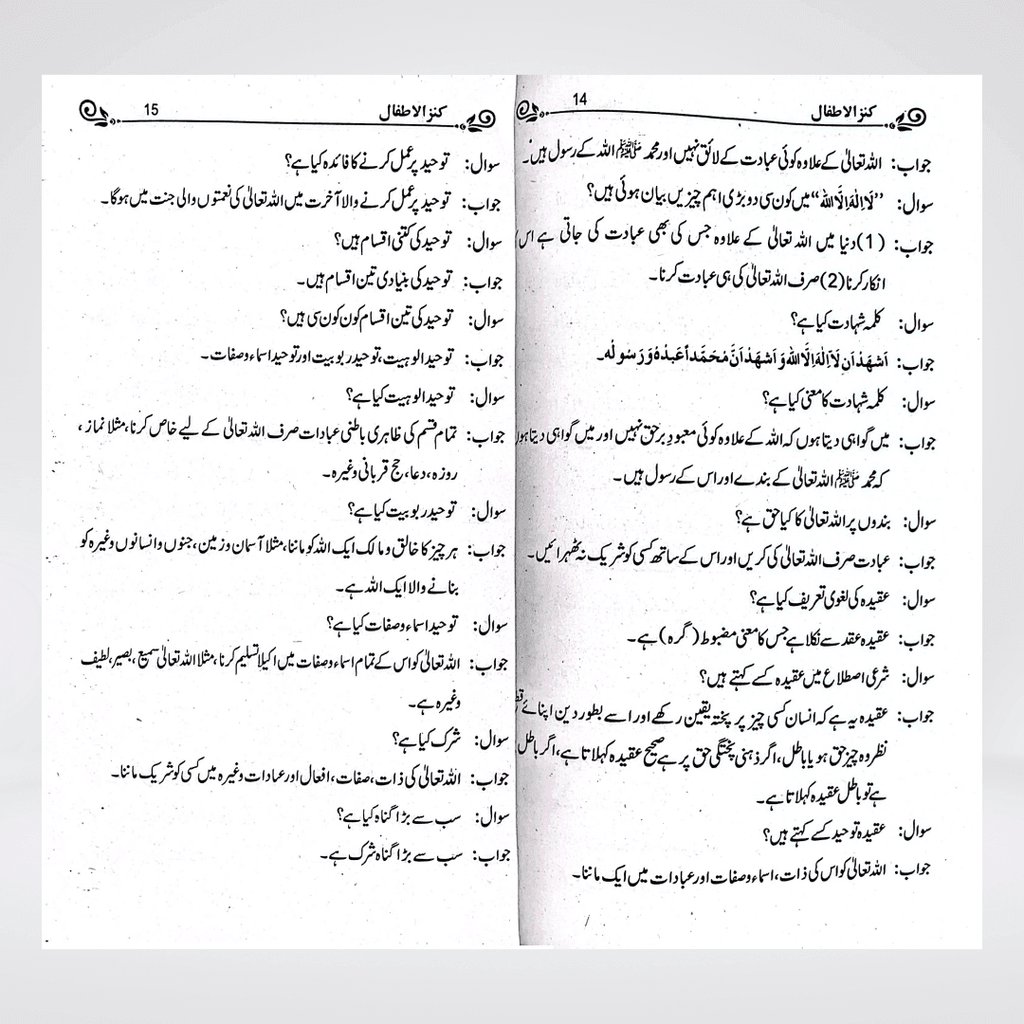 کنز الاطفال 14
جواب: اللہ تعالیٰ کے علاوہ کوئی عبادت کے لائق نہیں اور محمد ﷺ اللہ کے رسول ہیں۔
سوال: ”لَا اِلٰهَ اِلَّا اللّٰه“ میں کون سی دو بڑی اہم چیزیں بیان ہوئی ہیں؟
جواب: (1) دنیا میں اللہ تعالیٰ کے علاوہ جس کی بھی عبادت کی جاتی ہے اس
انکار کرنا (2) صرف اللہ تعالیٰ کی ہی عبادت کرنا۔
سوال: کلمہ شہادت کیا ہے؟
جواب: اَشهَدُ اَن لَآ اِلٰهَ اِلَّا اللّٰه وَ اَشهَدُ اَنَّ مُحَمَّداً عَبدُهٗ وَ رَسولُه۔
سوال: کلمہ شہادت کا معنی کیا ہے؟
جواب: میں گواہی دیتا ہوں کہ اللہ کے علاوہ کوئی معبودِ برحق نہیں اور میں گواہی دیتا ہوں
کہ محمد ﷺ اللہ تعالیٰ کے بندے اور اس کے رسول ہیں۔
سوال: بندوں پر اللہ تعالیٰ کا کیا حق ہے؟
جواب: عبادت صرف اللہ تعالیٰ کی کریں اور اس کے ساتھ کسی کو شریک نہ ٹھہرائیں۔
سوال: عقیدہ کی لغوی تعریف کیا ہے؟
جواب: عقیدہ عقد سے نکلا ہے جس کا معنی مضبوط (گرہ) ہے۔
سوال: شرعی اصطلاح میں عقیدہ کسے کہتے ہیں؟
جواب: عقیدہ یہ ہے کہ انسان کسی چیز پر پختہ یقین رکھے اور اسے بطور دین اپنائے
نظر وہ چیز حق ہو یا باطل، اگر ذہنی پختگی حق پر ہے صحیح عقیدہ کہلاتا ہے، اگر باطل
ہے تو باطل عقیدہ کہلاتا ہے۔
سوال: عقیدہ توحید کسے کہتے ہیں؟
جواب: اللہ تعالیٰ کو اس کی ذات، اسماء و صفات اور عبادات میں ایک ماننا۔
کنز الاطفال 15
سوال: توحید پر عمل کرنے کا فائدہ کیا ہے؟
جواب: توحید پر عمل کرنے والا آخرت میں اللہ تعالیٰ کی نعمتوں والی جنت میں ہوگا۔
سوال: توحید کی کتنی اقسام ہیں؟
جواب: توحید کی بنیادی تین اقسام ہیں۔
سوال: توحید کی تین اقسام کون کون سی ہیں؟
جواب: توحید الوہیت، توحید ربوبیت اور توحید اسماء و صفات۔
سوال: توحید الوہیت کیا ہے؟
جواب: تمام قسم کی ظاہری باطنی عبادات صرف اللہ تعالیٰ کے لیے خاص کرنا، مثلا نماز،
روزہ، دعا، حج قربانی وغیرہ۔
سوال: توحید ربوبیت کیا ہے؟
جواب: ہر چیز کا خالق و مالک ایک اللہ کو ماننا، مثلا آسمان و زمین، جنوں و انسانوں وغیرہ کو
بنانے والا ایک اللہ ہے۔
سوال: توحید اسماء و صفات کیا ہے؟
جواب: اللہ تعالیٰ کو اس کے تمام اسماء و صفات میں اکیلا تسلیم کرنا، مثلا اللہ تعالیٰ سمیع، بصیر، لطیف
وغیرہ ہے۔
سوال: شرک کیا ہے؟
جواب: اللہ تعالیٰ کی ذات، صفات، افعال اور عبادات وغیرہ میں کسی کو شریک ماننا۔
سوال: سب سے بڑا گناہ کیا ہے؟
جواب: سب سے بڑا گناہ شرک ہے۔